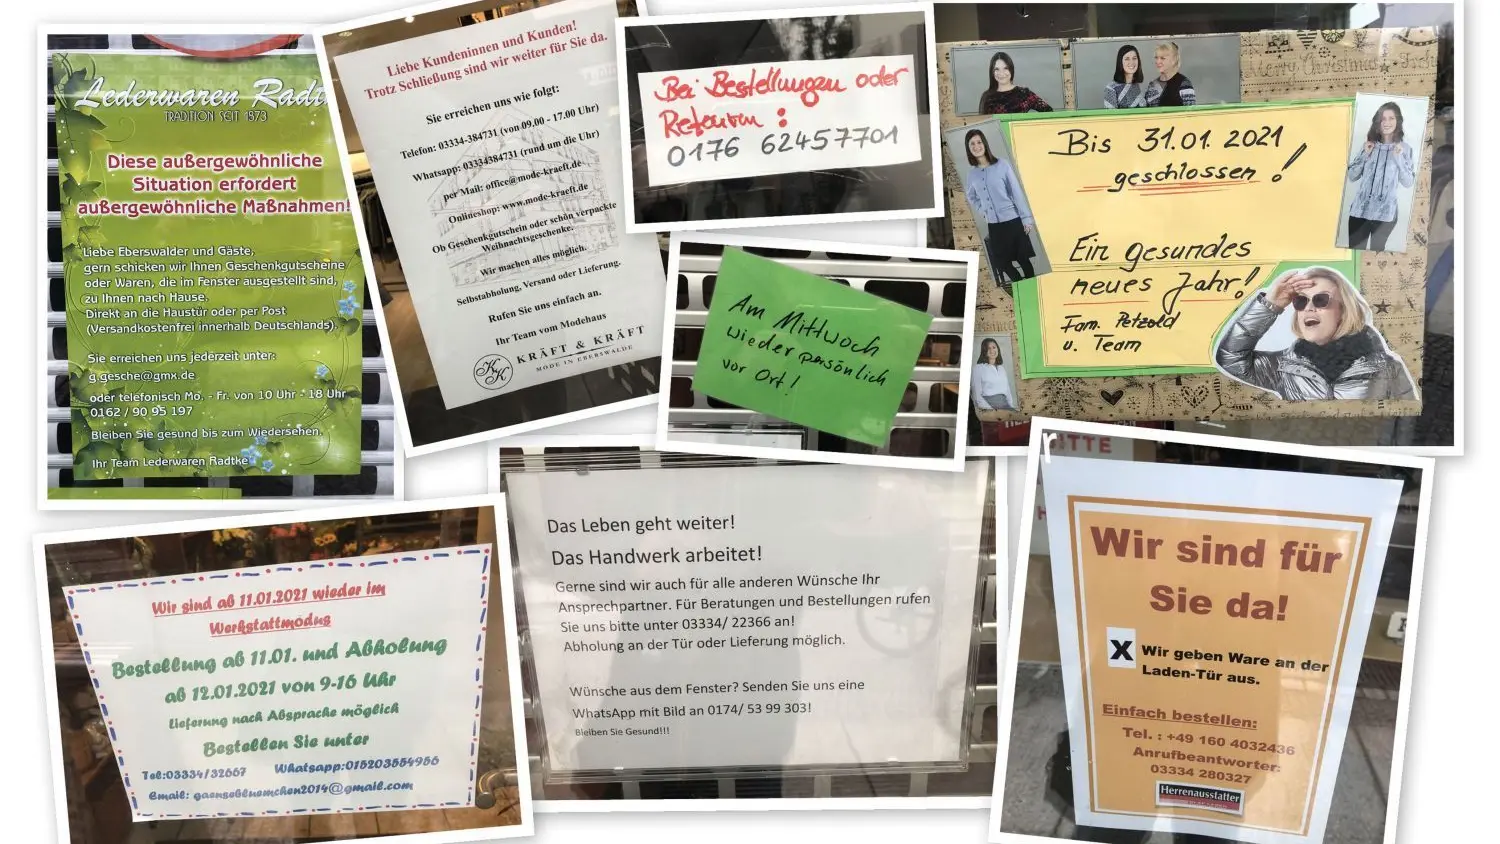 Lederwaren
TRADITION SEIT 1873
Diese außergewöhnliche
Situation erfordert
außergewöhnliche Maßnahmen!
Liebe Eberswalder und Gäste,
gern schicken wir Ihnen Geschenkgutscheine
oder Waren, die im Fenster ausgestellt sind,
zu Ihnen nach Hause.
Direkt an die Haustür oder per Post
(Versandkostenfrei innerhalb Deutschlands).
Sie erreichen uns jederzeit unter:
g.gesche@gmx.de
oder telefonisch Mo. - Fr. von 10 Uhr - 18 Uhr
0162 / 90 95 197
Bleiben Sie gesund bis zum Wiedersehen.
Ihr Team Lederwaren Radtke
Liebe Kundeninnen und Kunden!
Trotz Schließung sind wir weiter für Sie da.
Sie erreichen uns wie folgt:
Telefon: 03334-384731 (von 09.00 - 17.00 Uhr)
Whatsapp: 03334384731 (rund um die Uhr)
per Mail: office@mode-kraeft.de
Onlineshop: www.mode-kraeft.de
Ob Geschenkgutschein oder schön verpackte
Weihnachtsgeschenke.
Wir machen alles möglich.
Selbstabholung, Versand oder Lieferung.
Rufen Sie uns einfach an.
Ihr Team vom Modehaus
KK KRÄFT & KRÄFT
MODE IN EBERSWALDE
Bei Bestellungen oder
Retouren :
0176 62457701
Am Mittwoch
wieder persönlich
vor Ort!
Merry Christmas
Bis 31.01.2021
geschlossen!
Ein gesundes
neues Jahr!
Fam. Petzold
u. Team
Wir sind ab 11.01.2021 wieder im
Werkstattmodus
Bestellung ab 11.01. und Abholung
ab 12.01.2021 von 9-16 Uhr
Lieferung nach Absprache möglich
Bestellen Sie unter
Tel:03334/32667 Whatsapp:015203554956
Email: gaensebluemchen2014@gmail.com
Das Leben geht weiter!
Das Handwerk arbeitet!
Gerne sind wir auch für alle anderen Wünsche Ihr
Ansprechpartner. Für Beratungen und Bestellungen rufen
Sie uns bitte unter 03334/ 22366 an!
Abholung an der Tür oder Lieferung möglich.
Wünsche aus dem Fenster? Senden Sie uns eine
WhatsApp mit Bild an 0174/ 53 99 303!
Bleiben Sie Gesund!!!
Wir sind für
Sie da!
X Wir geben Ware an der
Laden-Tür aus.
Einfach bestellen:
Tel. : +49 160 4032436
Anrufbeantworter:
03334 280327
Herrenausstatter